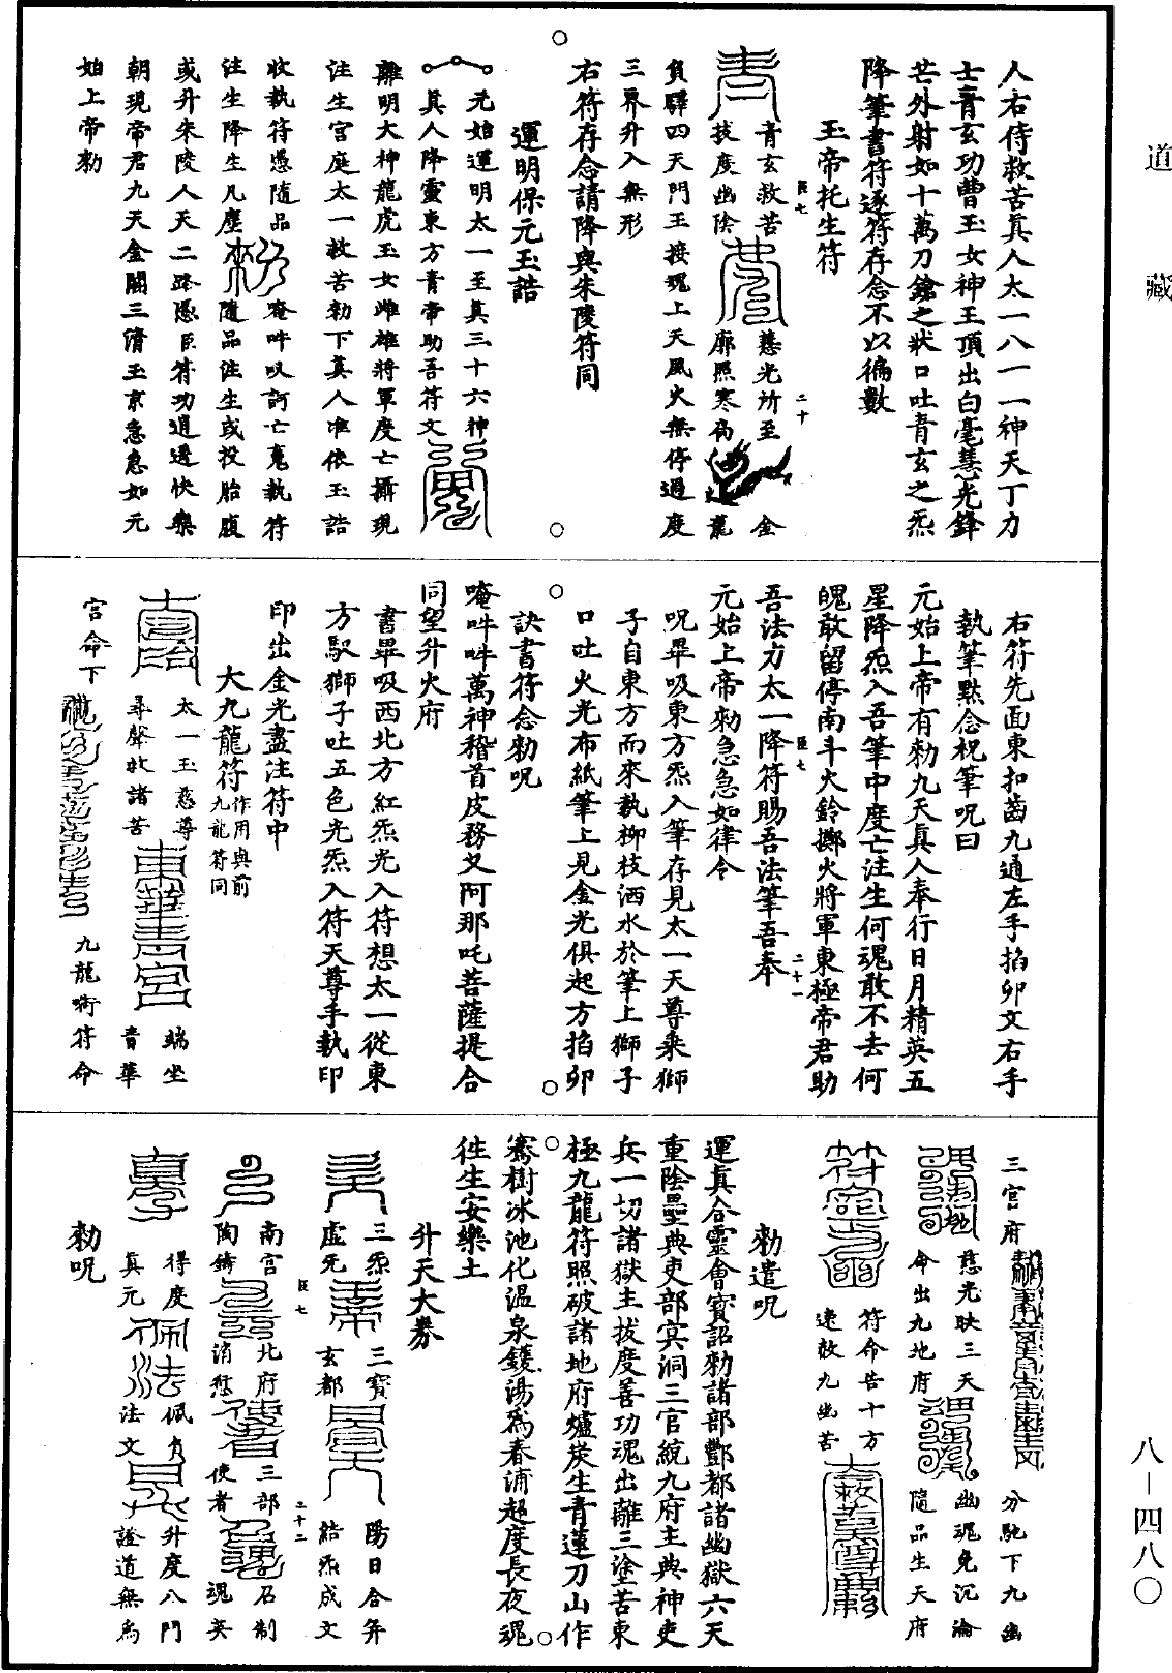 道藏
人右侍救苦真人太一八一一一神天丁力
士青玄功曹玉女神王頂出白毫慧光鋒
芒外射如十萬刀鎗之狀口吐青玄之炁
降筆書符逐符存念不以徧數
玉帝托生符
臣七
二十
青玄救苦
拔度幽陰
慈光所至
廓照寒
金
龍
負驛四天門王接魂上天風火無停過度
三界升入無形
右符存念請降與朱陵符同
運明保元玉誥
元始運明太一至真三十六神
真人降靈東方青帝助吾符文
離明大神龍虎玉女雌雄將軍度亡攝現
注生宮庭太一救苦勑下真人准依玉誥
收執符憑隨品
唵吽㕸訶亡魂執符
注生降生凡塵
隨品注生或投胎腹
或升朱陵人天二路憑臣符功逍遥快樂
朝現帝君九天金闕三清玉京急急如元
始上帝勑
右符先面東扣齒九通左手掐卯文右手
執筆默念祝筆呪曰
元始上帝有勑九天真人奉行日月精英五
星降炁入吾筆中度亡注生何魂敢不去何
魄敢留停南斗火鈴擲火將軍東極帝君助
吾法力太一降符賜吾法筆吾奉
臣七
二十一
元始上帝勑急急如律令
呪畢吸東方炁入筆存見太一天尊乘獅
子自東方而來執柳枝洒水於筆上獅子
口吐火光布紙筆上見金光俱起方掐卯
訣書符念勑呪
唵吽吽萬神稽首皮務乂阿那吒菩薩提合
同望升火府
書畢吸西北方紅炁光入符想太一從東
方馭獅子吐五色光炁入符天尊手執印
印出金光盡注符中
大九龍符作用與前九龍符同
太一玉慈尊
尋聲救諸苦
端坐
青華
宮命下
九龍嘶符命
三官府
分馳下九幽
慈光映三天
命出九地府
幽魂免沉淪
隨品生天府
符命告十方
速救九幽苦
勑遣呪
運真合靈會寶詔勑諸部酆都諸幽獄六天
重陰墨典吏部㝠洞三官統九府主典神吏
兵一切諸獄主拔度善功魂出離三塗苦東
極九龍符照破諸地府爐炭生青蓮刀山作
騫樹冰池化温泉鑊湯為春浦超度長夜魂
徃生安樂土
升天大券
三炁
虛无
三寶
玄都
陽日合并
結炁成文
臣七
二十二
南宮
陶鑄
北府
消愆
三部
使者
石制
魂㚑
得度
真元
佩負
法文
升度八門
證道無為
勑呪
八—四八〇